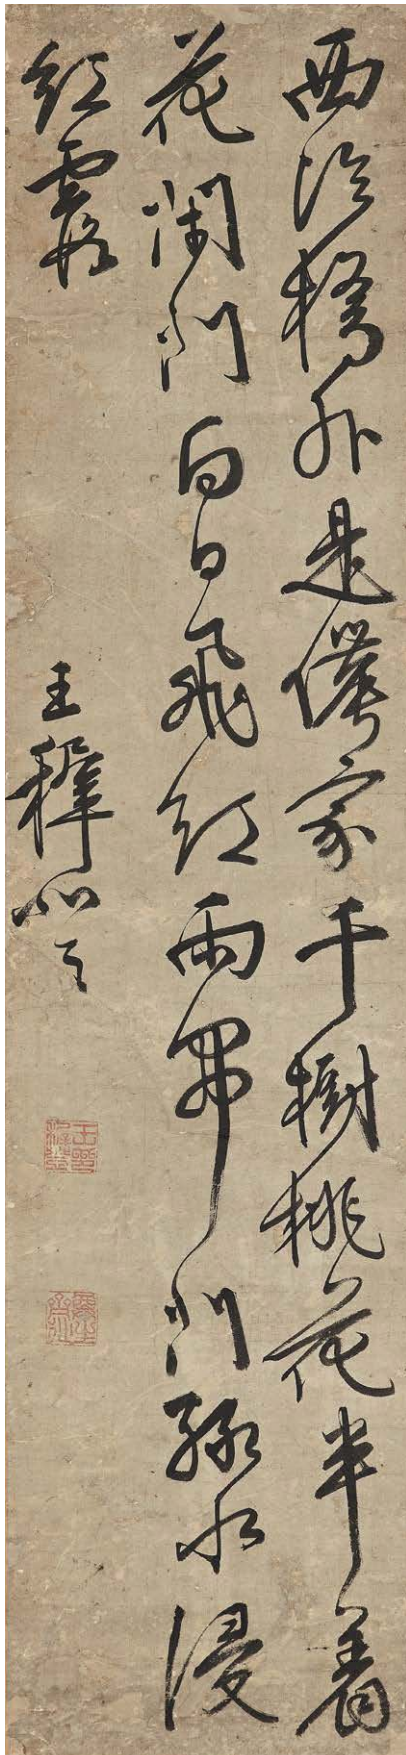 西泠橋外是僊家千樹桃花半着
花閉門白日飛紅雨開門綠水浸
紅霞
王穉登